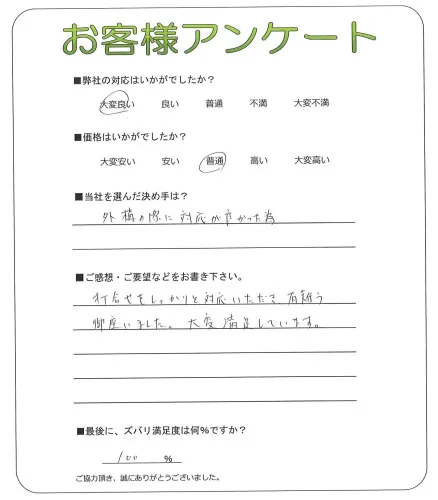 お客様アンケート
■弊社の対応はいかがでしたか?
大変良い 良い 普通 不満 大変不満
■価格はいかがでしたか?
大変安い 安い 普通 高い 大変高い
■当社を選んだ決め手は?
外構の際に対応が良かった為
■ご感想・ご要望などをお書き下さい。
打合せをしっかりと対応いただき有難う
御座いました。大変満足しています。
■最後に、ズバリ満足度は何%ですか?
100 %
ご協力頂き、誠にありがとうございました。